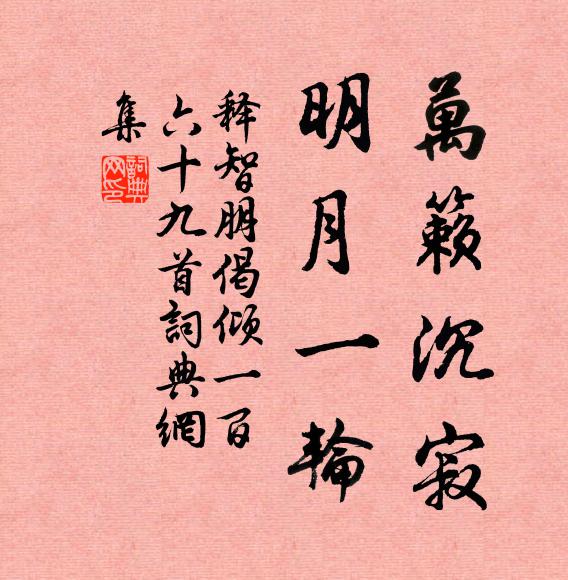 萬籟沉寂
明月一輪
释智朋偈倾一百
六十九首詞典網
集
詞典网印